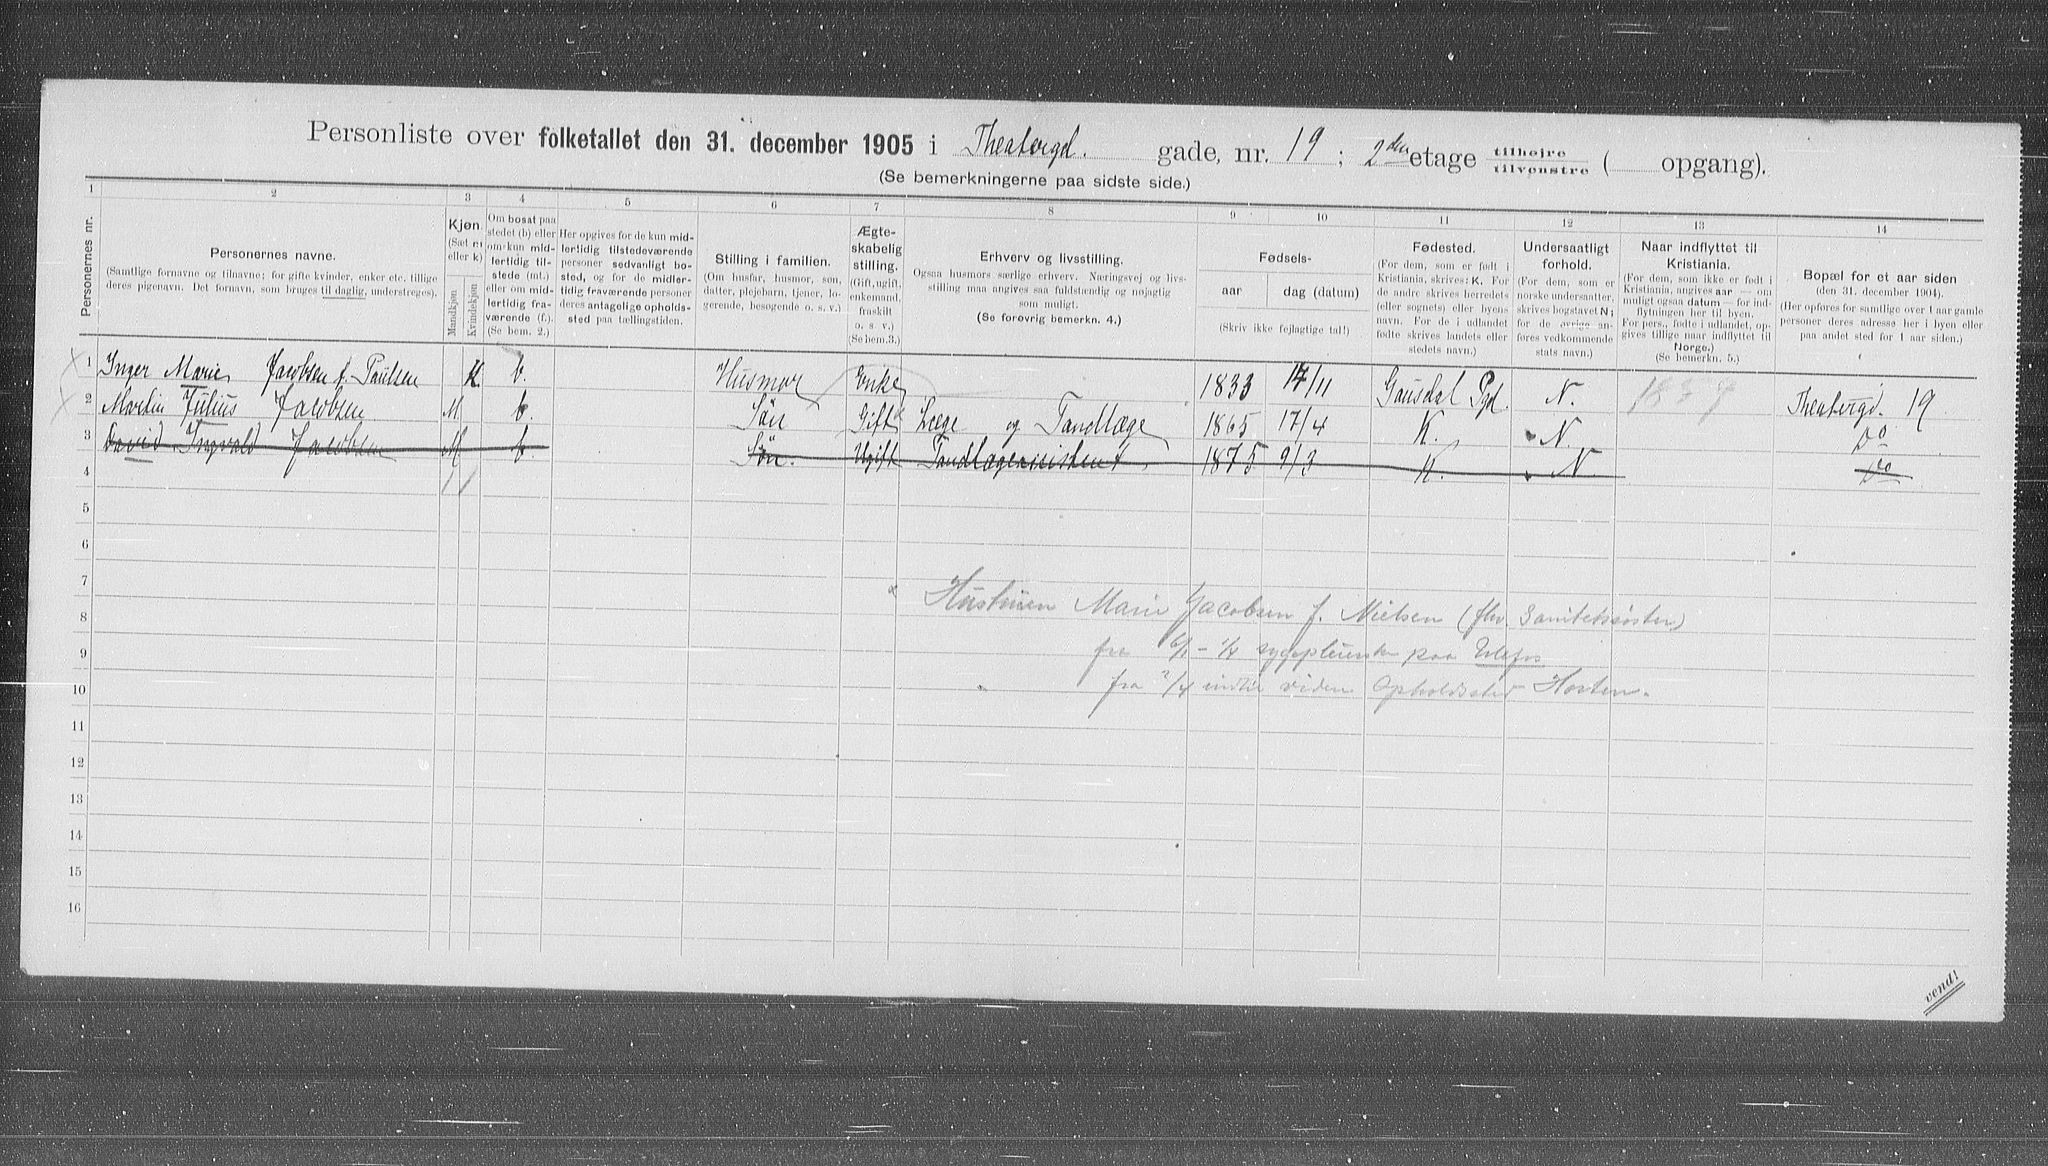 Personliste over folketallet den 31. december 1905 i Theatergd. gade, nr. 19; 2den etage tilhøjre tilvenstre ( opgang).
(Se bemerkningerne paa sidste side.)
1 2 3 4 5 6 7 8 9 10 11 12 13 14
Personernes nr.
Personernes navne.
(Samtlige fornavne og tilnavne; for gifte kvinder, enker etc. tillige
deres pigenavn. Det fornavn, som bruges til daglig, understreges).
Kjøn.
(Sæt m
eller k)
Mandkjøn
Kvindekjøn
Om bosat paa
stedet (b) eller
om kun mid-
lertidig til-
stede (mt.)
eller om mid-
lertidig fra-
værende (f.).
(Se bem. 2.)
Her opgives for de kun mid-
lertidig tilstedeværende
personer sedvanligt bo-
sted, og for de midler-
tidig fraværende personer
deres antagelige opholds-
sted paa tællingstiden.
Stilling i familien.
(Om husfar, husmor, søn,
datter, plejebarn, tjener, lo-
gerende, besøgende o. s. v.)
Ægte-
skabelig
stilling.
(Gift, ugift,
enkemand,
fraskilt
o. s. v.)
(Se bem. 3.)
Erhverv og livsstilling.
Ogsaa husmors særlige erhverv. Næringsvej og livs-
stilling maa angives saa fuldstændig og nøjagtig
som muligt.
(Se forøvrig bemerkn. 4.)
Fødsels-
aar
dag (datum)
(Skriv ikke fejlagtige tal!)
Fødested.
(For dem, som er født i
Kristiania, skrives: K. For
de andre skrives herredets
(eller sognets) eller byens
navn. For de i udlandet
fødte skrives landets eller
stedets navn.)
Undersaatligt
forhold.
(For dem, som er
norske undersaatter,
skrives bogstavet N;
for de øvrige an-
føres vedkommende
stats navn.)
Naar indflyttet til
Kristiania.
(For dem, som ikke er født i
Kristiania, angives aar — om
muligt ogsaa datum — for ind-
flytningen her til byen.
For pers., fødte i udlandet, op-
gives tillige naar indflyttet til
Norge.)
(Se bemerkn. 5.)
Bopæl for et aar siden
(den 31. december 1904).
(Her opføres for samtlige over 1 aar gamle
personer deres adresse her i byen eller
paa andet sted for 1 aar siden.)
1 Inger Marie Jacobsen f. Paulsen K b. Husmor Enke 1833 17/11 Gausdal Pgd. N. 1857 Theatergd. 19
2 Martin Julius Jacobsen M b. Søn Gift x Læge og Tandlæge 1865 17/4 K. N. Do
3 David Ingvald Jacobsen M b. Søn. Ugift Tandlægeassistent. 1875 9/3 K. N Do
4
5
6
7
x Hustruen Marie Jacobsen f. Nielsen (fhv. Sanitetssøster)
8
fra 6/1 - 1/4 sygepleierske paa Ulefos
9
fra 2/4 indtil viden Opholdssted Horten.
10
11
12
13
14
15
16
vend!